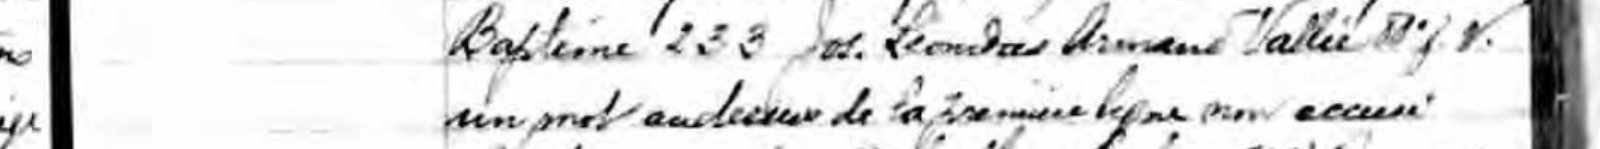 Baptême 233 Jos. Leonidas Armand Vallée
un mot audessus de la premiere ligne non accusé